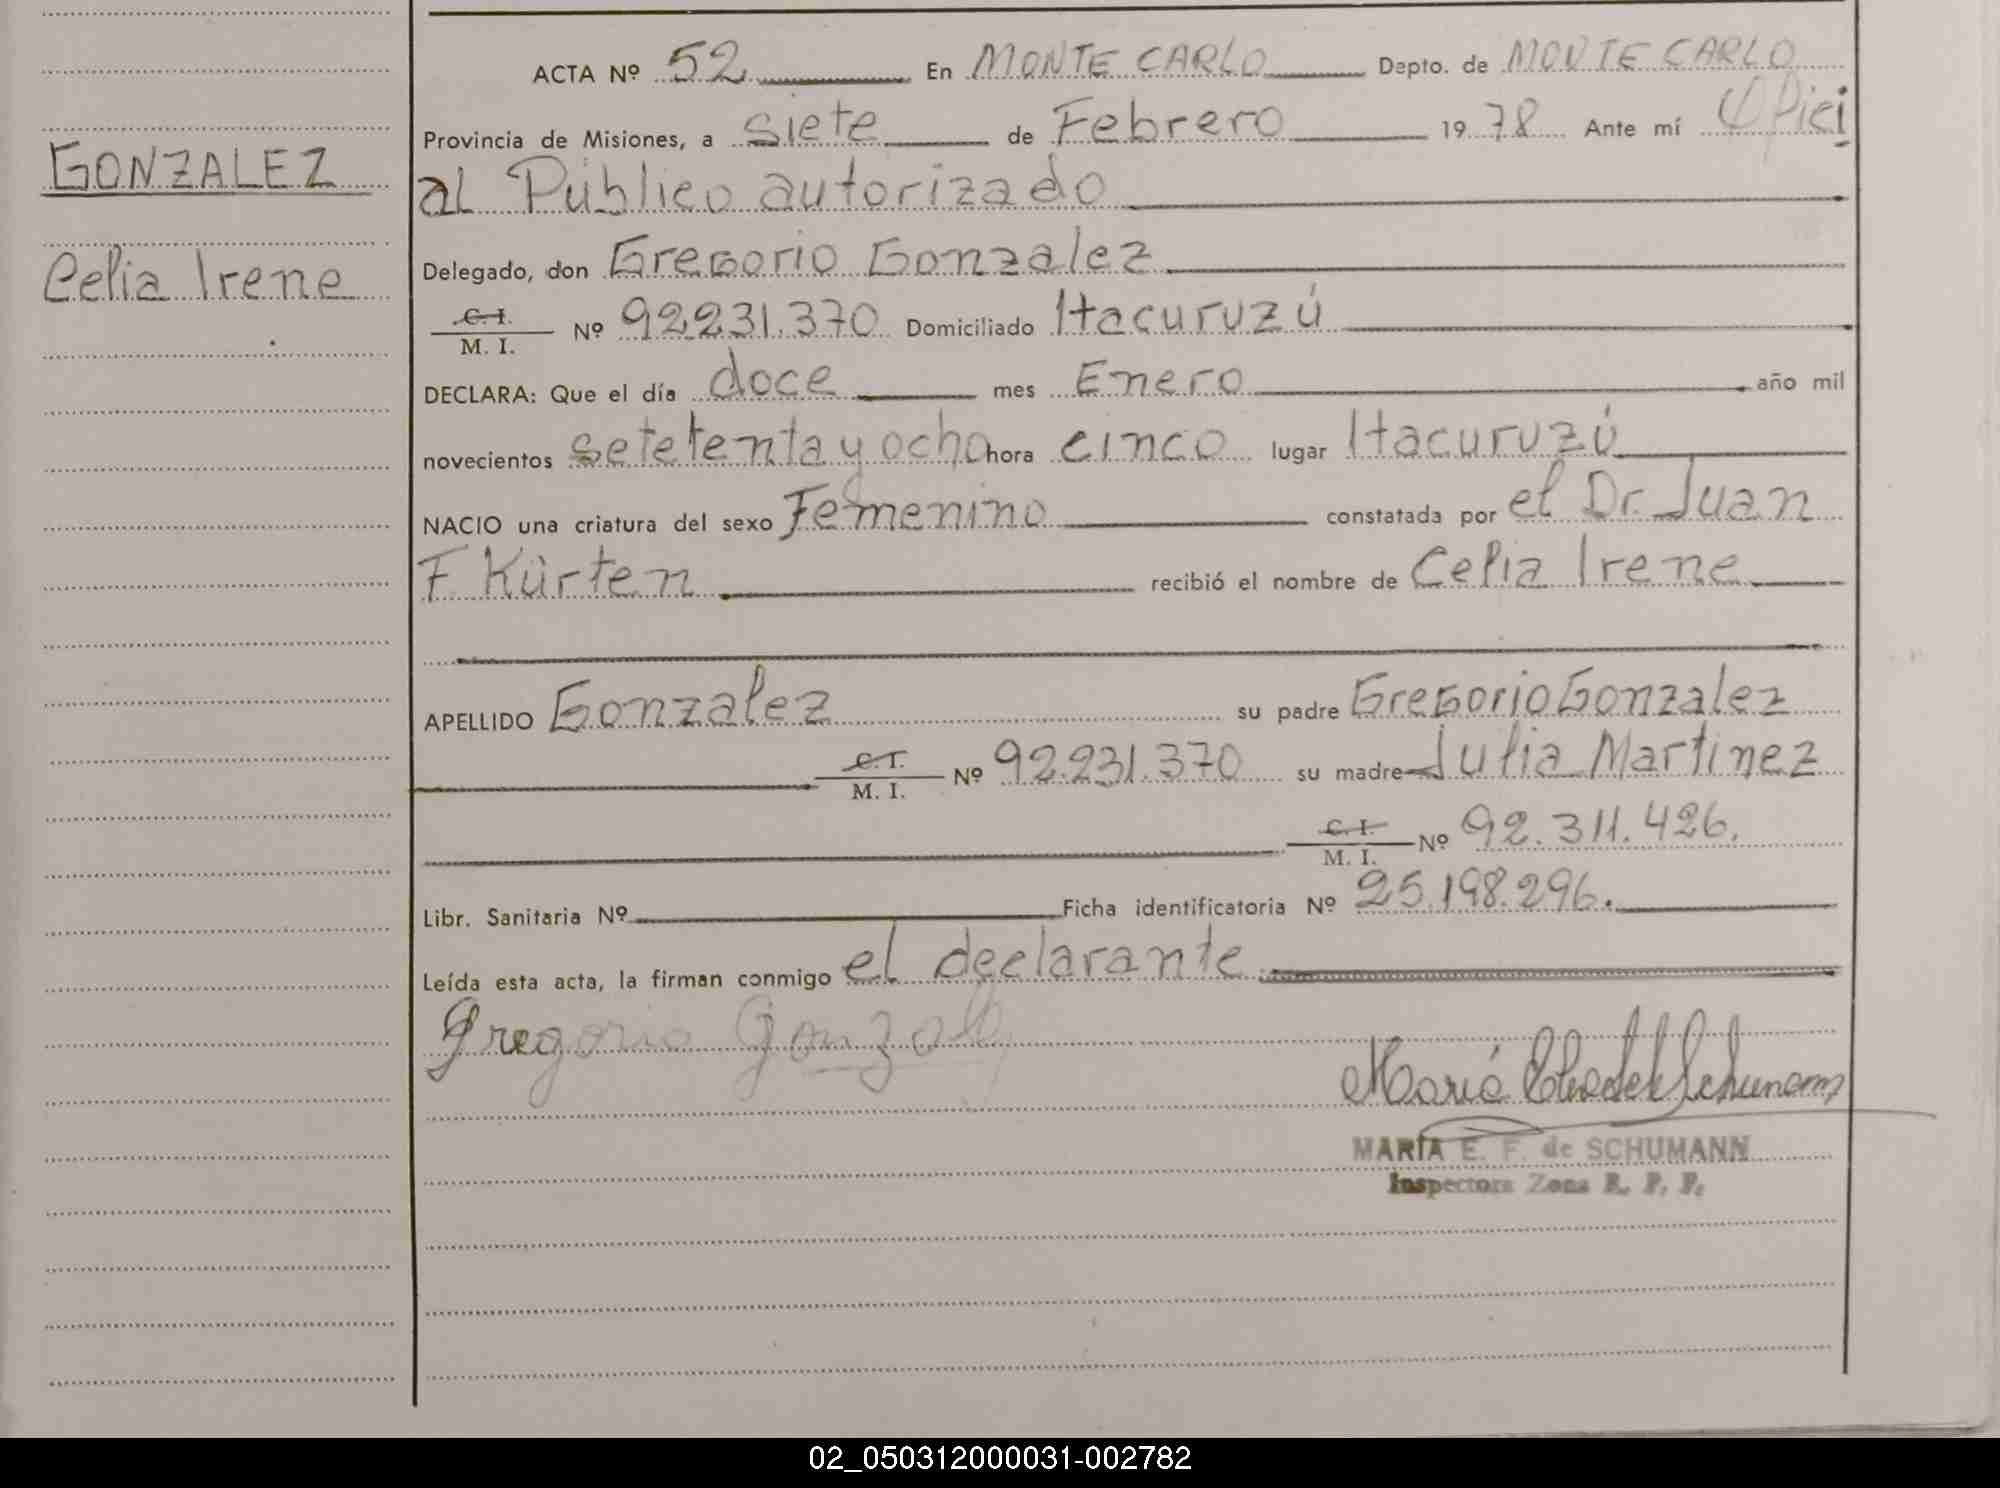 GONZALEZ
Celia Irene
ACTA Nº 52 En MONTE CARLO Depto. de MONTE CARLO
Provincia de Misiones, a siete de Febrero 1978 Ante mí Ofici
al Público autorizado
Delegado, don Gregorio Gonzalez
C. I.
M. I. Nº 92.231.370 Domiciliado Itacuruzú
DECLARA: Que el día doce mes Enero año mil
novecientos setetenta y ocho hora cinco lugar Itacuruzú
NACIO una criatura del sexo Femenino constatada por el Dr. Juan
F. Kürten recibió el nombre de Celia Irene
APELLIDO Gonzalez su padre Gregorio Gonzalez
C. I.
M. I. Nº 92.231.370 su madre Julia Martinez
C. I.
M. I. Nº 92.311.426.
Libr. Sanitaria Nº Ficha identificatoria Nº 25.198.296.
Leída esta acta, la firman conmigo el declarante
Gregorio Gonzalez
María Schumann
MARÍA E. F. de SCHUMANN
Inspectora Zona R. P. P.
02_050312000031-002782